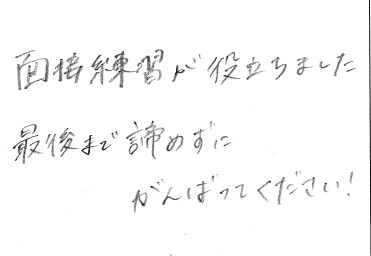 面接練習が役立ちました
最後まで諦めずに
がんばってください!